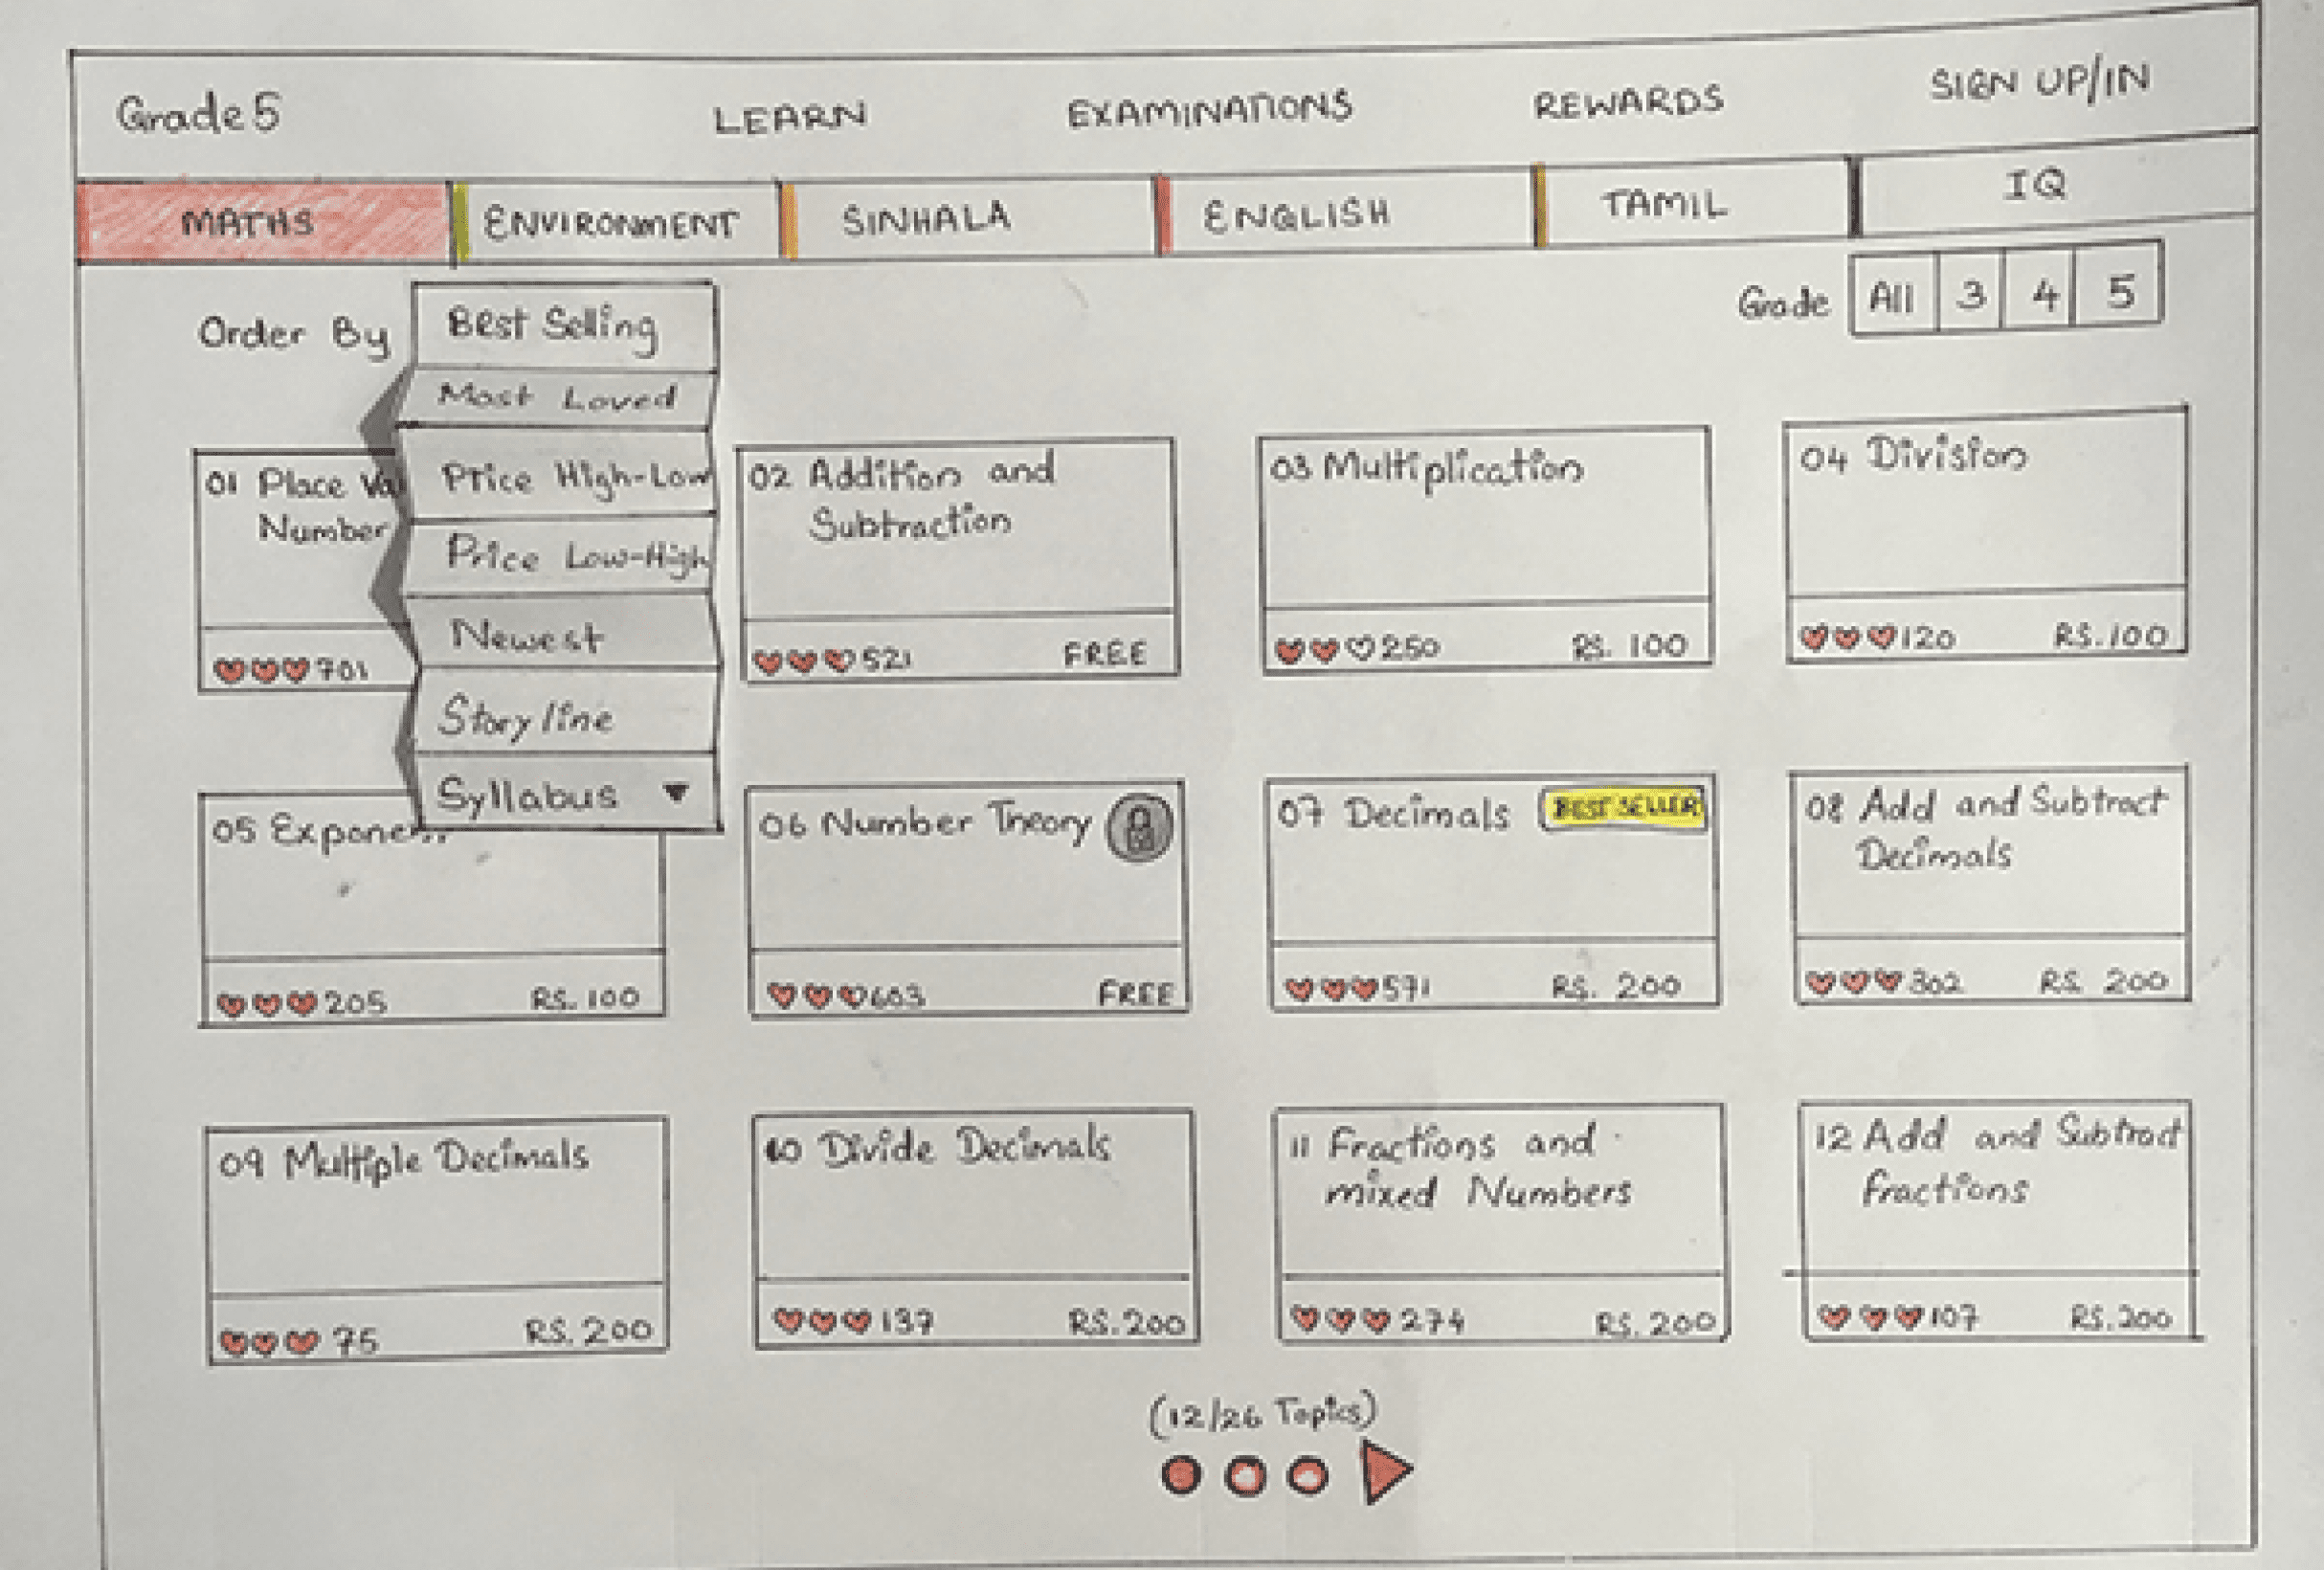 Grade 5 LEARN EXAMINATIONS REWARDS SIGN UP/IN
MATHS ENVIRONMENT SINHALA ENGLISH TAMIL IQ
Order By
Best Selling
Most Loved
Price High-Low
Price Low-High
Newest
Story line
Syllabus
Grade All 3 4 5
01 Place
Number
701
02 Addition and
Subtraction
521 FREE
03 Multiplication
250 RS. 100
04 Division
120 RS. 100
05
205 RS. 100
06 Number Theory
603 FREE
07 Decimals BEST SELLER
571 RS. 200
08 Add and Subtract
Decimals
302 RS 200
09 Multiple Decimals
75 RS. 200
10 Divide Decimals
137 RS. 200
11 Fractions and
mixed Numbers
274 RS. 200
12 Add and Subtract
fractions
107 RS. 200
(12/26 Topics)